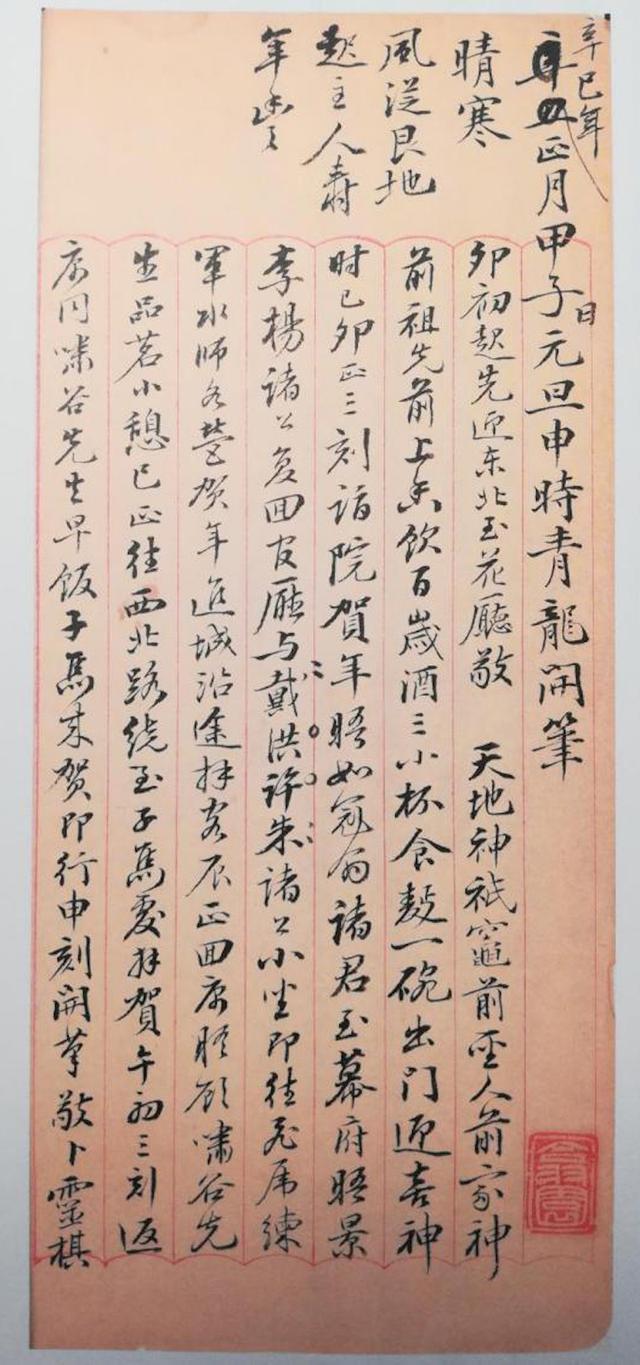 辛巳年
正月甲子日元旦申時青龍開筆
晴寒
風從艮地
起主人壽
年豐
卯初起先迎东北至花廳敬 天地神祇竈前聖人前家神
前祖先前上香飲百歲酒三小杯食麪一碗出门迎喜神
时已卯正三刻詣院賀年晤如冠翁諸君至幕府晤景
李楊諸公复回官廳与戴洪许朱諸公小坐即往虎席練
軍水师各营贺年進城沿途拜客辰正回寓晤顾嘯谷先
生品茗小憩巳正往西北路绕至子馬處拜賀午初三刻返
寓同嘯谷先生早饭子馬来贺即行申刻開笔敬卜靈棋